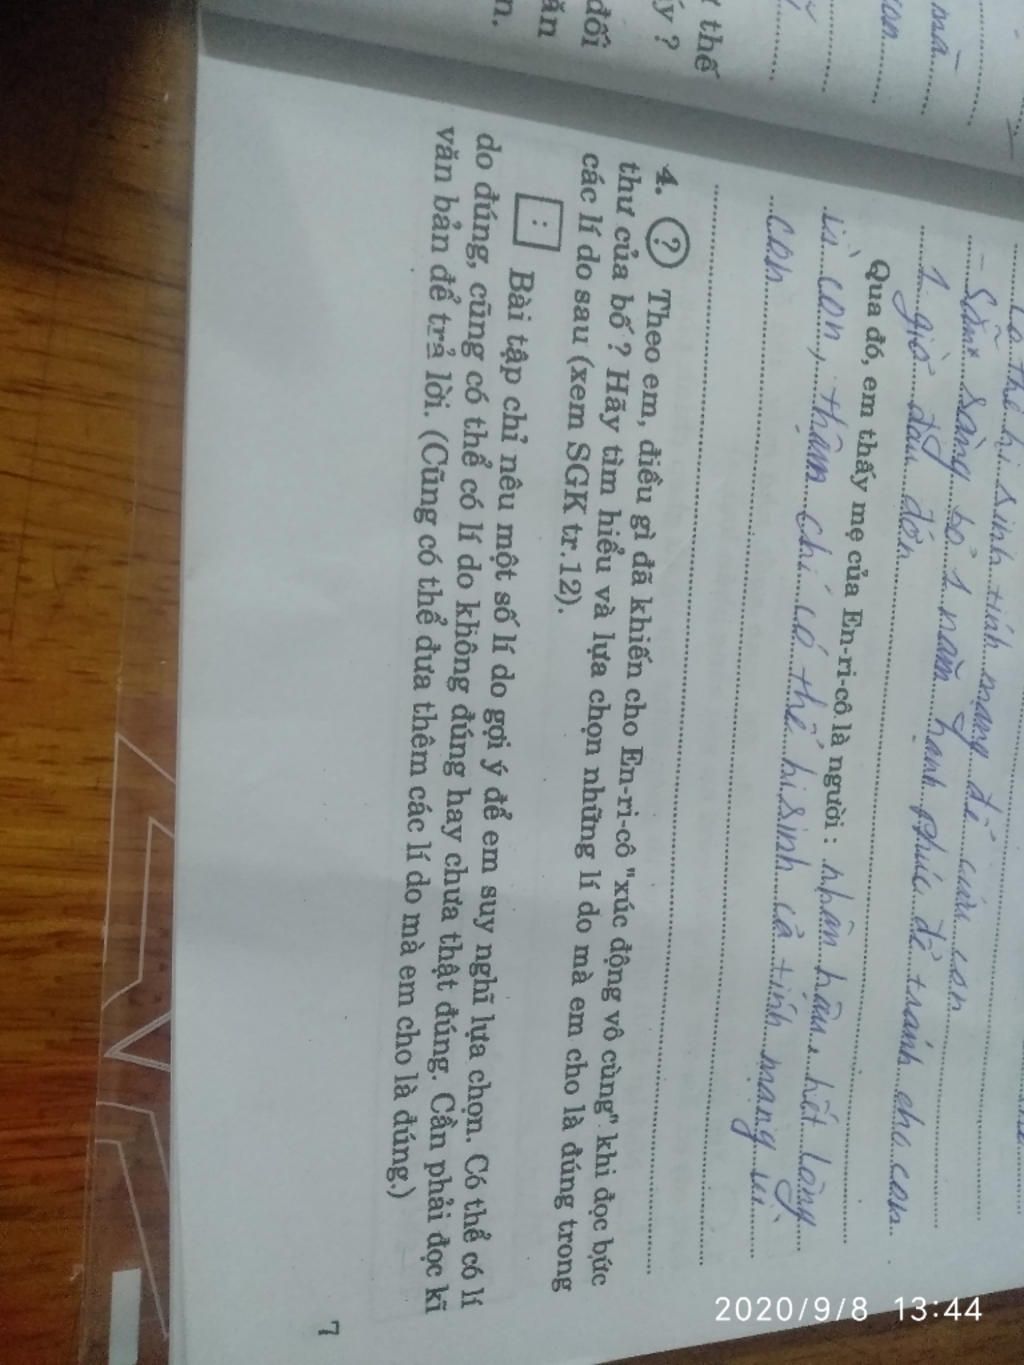 thế
ấy ?
đối
ăn
n.
mà
con
có thể hi sinh tính mạng để cứu con
- Sẵn sàng bỏ 1 năm hạnh phúc để tránh cho con
1 giờ đau đớn
Qua đó, em thấy mẹ của En-ri-cô là người : nhân hậu, hết lòng
vì con, thậm chí có thể hi sinh cả tính mạng vì
con
4. ? Theo em, điều gì đã khiến cho En-ri-cô "xúc động vô cùng" khi đọc bức
thư của bố ? Hãy tìm hiểu và lựa chọn những lí do mà em cho là đúng trong
các lí do sau (xem SGK tr.12).
: Bài tập chỉ nêu một số lí do gợi ý để em suy nghĩ lựa chọn. Có thể có lí
do đúng, cũng có thể có lí do không đúng hay chưa thật đúng. Cần phải đọc kĩ
văn bản để trả lời. (Cũng có thể đưa thêm các lí do mà em cho là đúng.)
7
2020/9/8 13:44